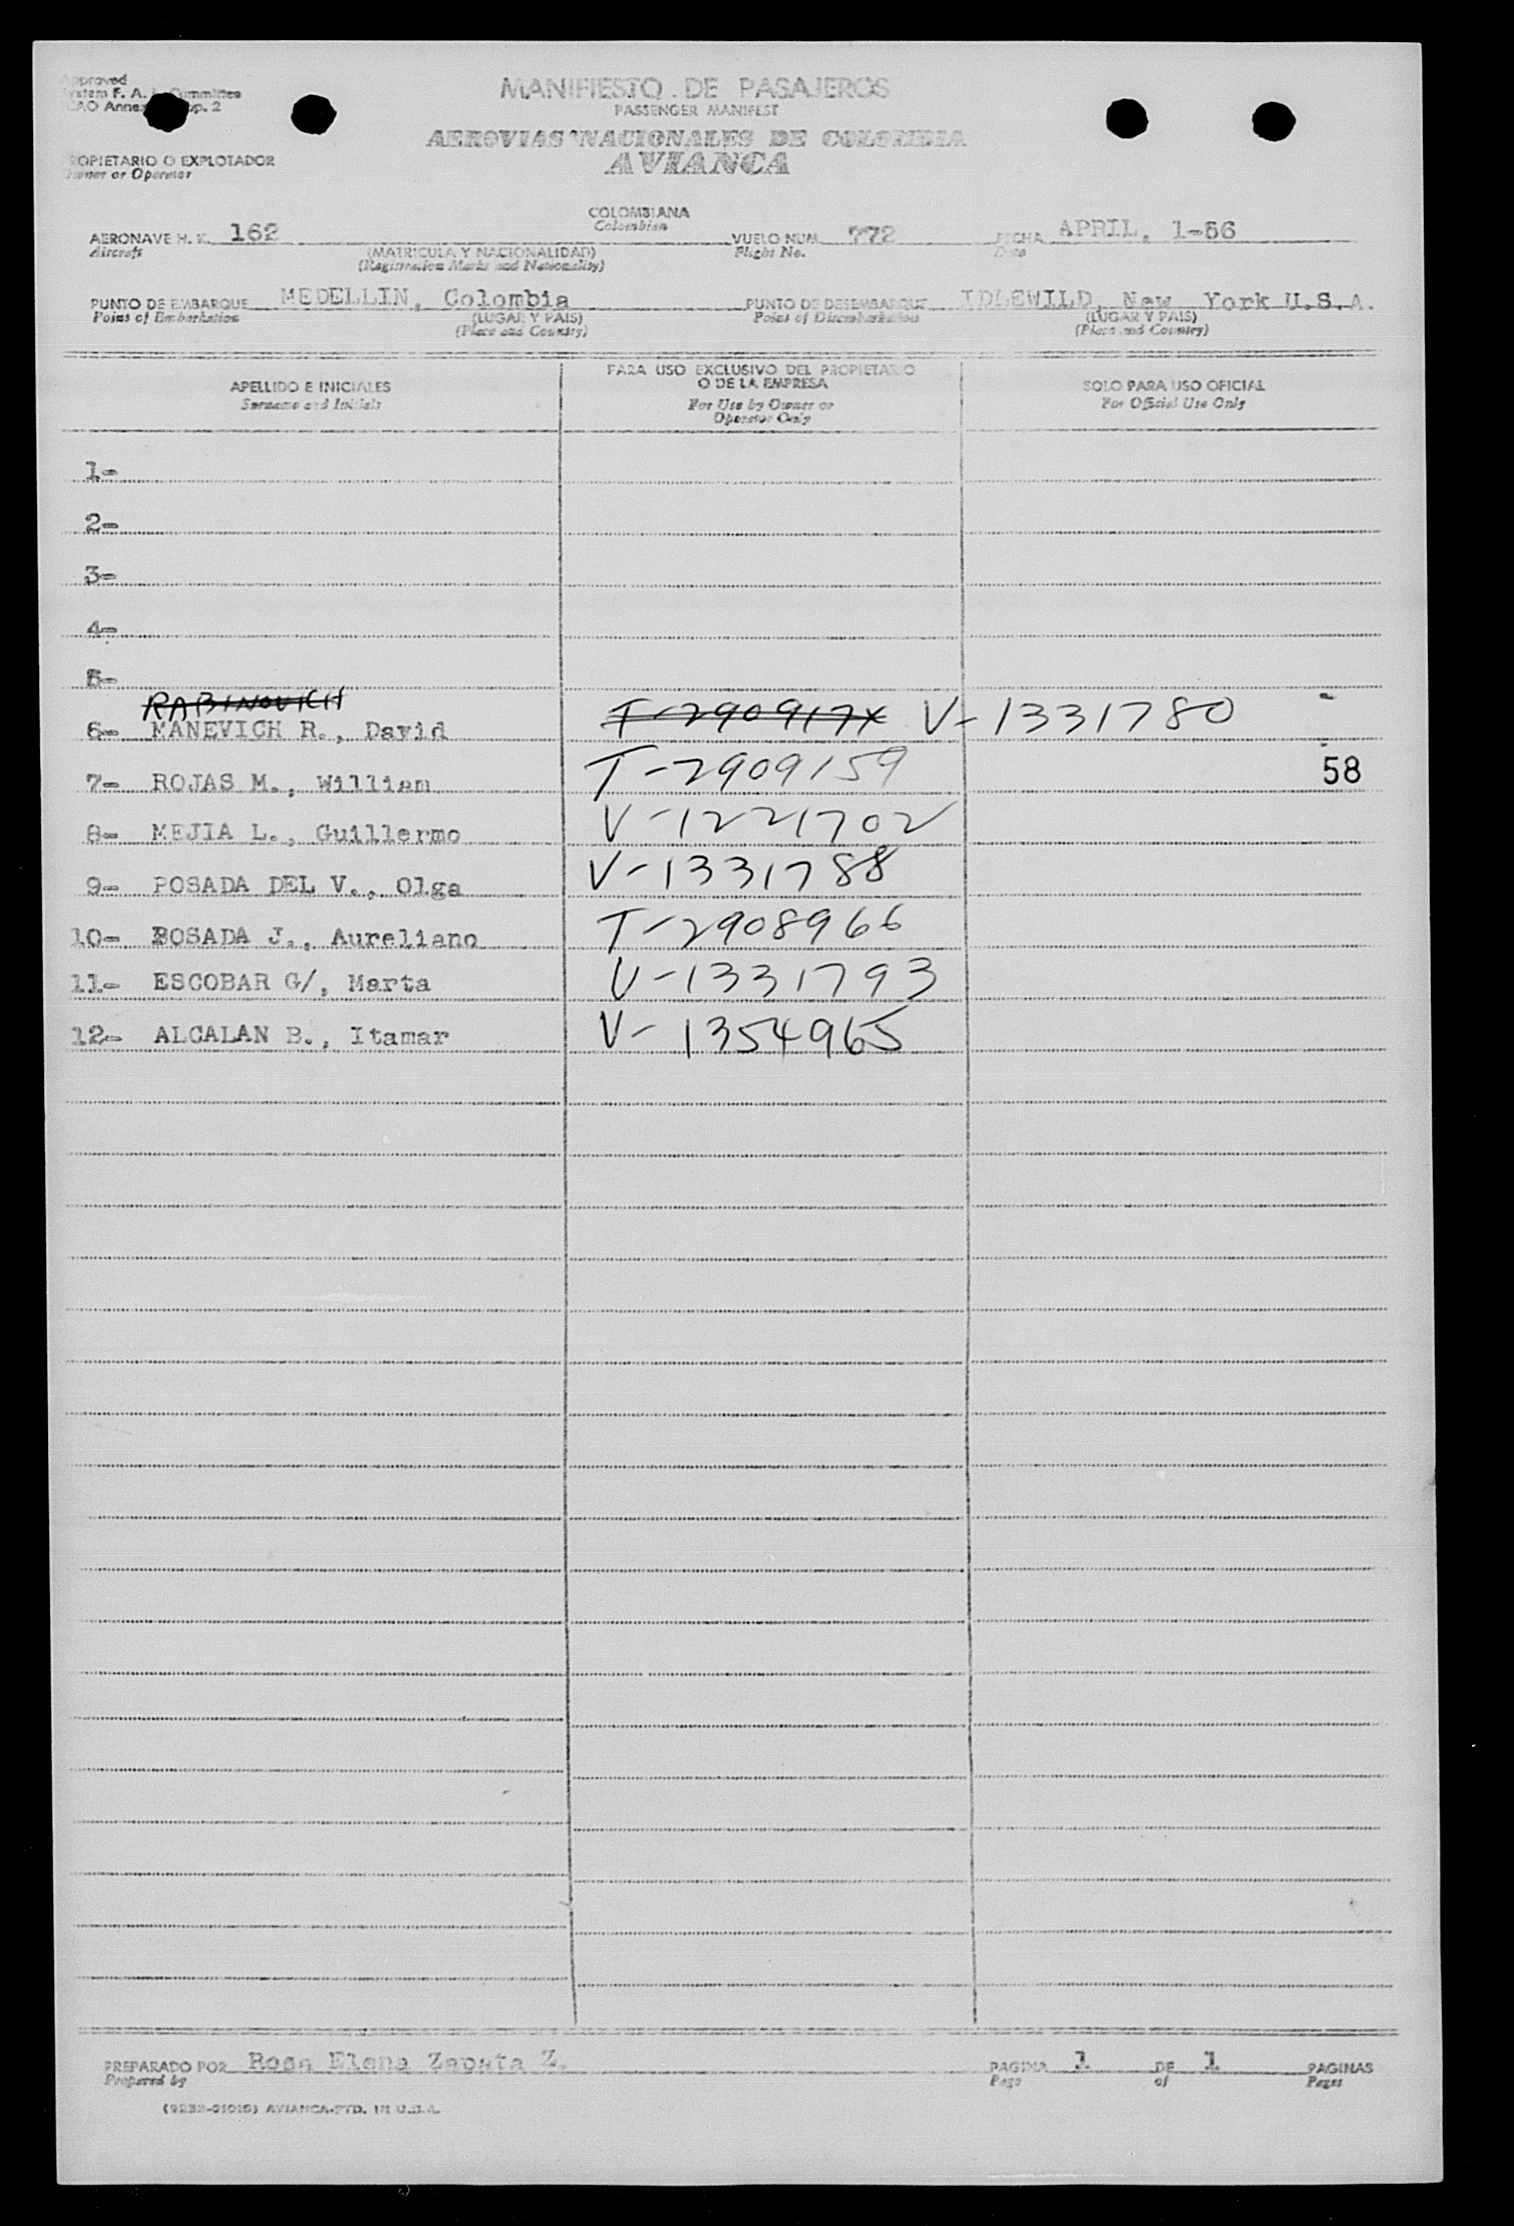 Approved
System F. A. L. Committee
ICAO Annex 9 App. 2
MANIFIESTO DE PASAJEROS
PASSENGER MANIFEST
AEROVIAS NACIONALES DE COLOMBIA
AVIANCA
PROPIETARIO O EXPLOTADOR
Owner or Operator
COLOMBIANA
Colombian
AERONAVE H. K. 162 VUELO NUM. 772 FECHA APRIL, 1-56
Aircraft (MATRICULA Y NACIONALIDAD) Flight No. Date
(Registration Marks and Nationality)
PUNTO DE EMBARQUE MEDELLIN, Colombia PUNTO DE DESEMBARQUE IDLEWILD, New York U.S.A.
Point of Embarkation (LUGAR Y PAIS) Point of Disembarkation (LUGAR Y PAIS)
(Place and Country) (Place and Country)
APELLIDO E INICIALES PARA USO EXCLUSIVO DEL PROPIETARIO O DE LA EMPRESA SOLO PARA USO OFICIAL
Surname and Initials For Use by Owner or Operator Only For Official Use Only
1-
2-
3-
4-
5-
RABINOVICH
6- MANEVICH R., David T-290917X V-1331780
7- ROJAS M., William T-2909159 58
8- MEJIA L., Guillermo V-1221702
9- POSADA DEL V., Olga V-1331788
10- POSADA J., Aureliano T-2908966
11- ESCOBAR G/, Marta V-1331793
12- ALCALAN B., Itamar V-1354965
PREPARADO POR Rosa Elena Zapata Z. PAGINA 1 DE 1 PAGINAS
Prepared by Page of Pages
AVIANCA-PTD. IN U.S.A.